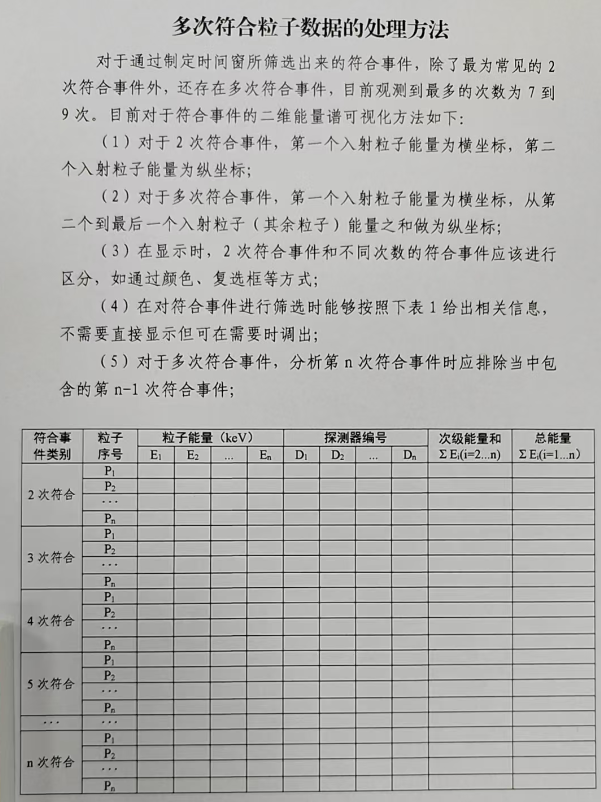 多次符合粒子数据的处理方法
对于通过制定时间窗所筛选出来的符合事件，除了最为常见的 2
次符合事件外，还存在多次符合事件，目前观测到最多的次数为 7 到
9 次。目前对于符合事件的二维能量谱可视化方法如下：
（1）对于 2 次符合事件，第一个入射粒子能量为横坐标，第二
个入射粒子能量为纵坐标；
（2）对于多次符合事件，第一个入射粒子能量为横坐标，从第
二个到最后一个入射粒子（其余粒子）能量之和做为纵坐标；
（3）在显示时，2 次符合事件和不同次数的符合事件应该进行
区分，如通过颜色、复选框等方式；
（4）在对符合事件进行筛选时能够按照下表 1 给出相关信息，
不需要直接显示但可在需要时调出；
（5）对于多次符合事件，分析第 n 次符合事件时应排除当中包
含的第 n-1 次符合事件；
符合事 粒子 粒子能量（keV） 探测器编号 次级能量和 总能量
件类别 序号 E₁ E₂ ... Eₙ D₁ D₂ ... Dₙ ΣEᵢ(i=2...n) ΣEᵢ(i=1...n）
P₁
P₂
2 次符合
...
Pₙ
P₁
P₂
3 次符合
...
Pₙ
P₁
P₂
4 次符合
...
Pₙ
P₁
P₂
5 次符合
...
Pₙ
... ...
P₁
P₂
n 次符合
...
Pₙ